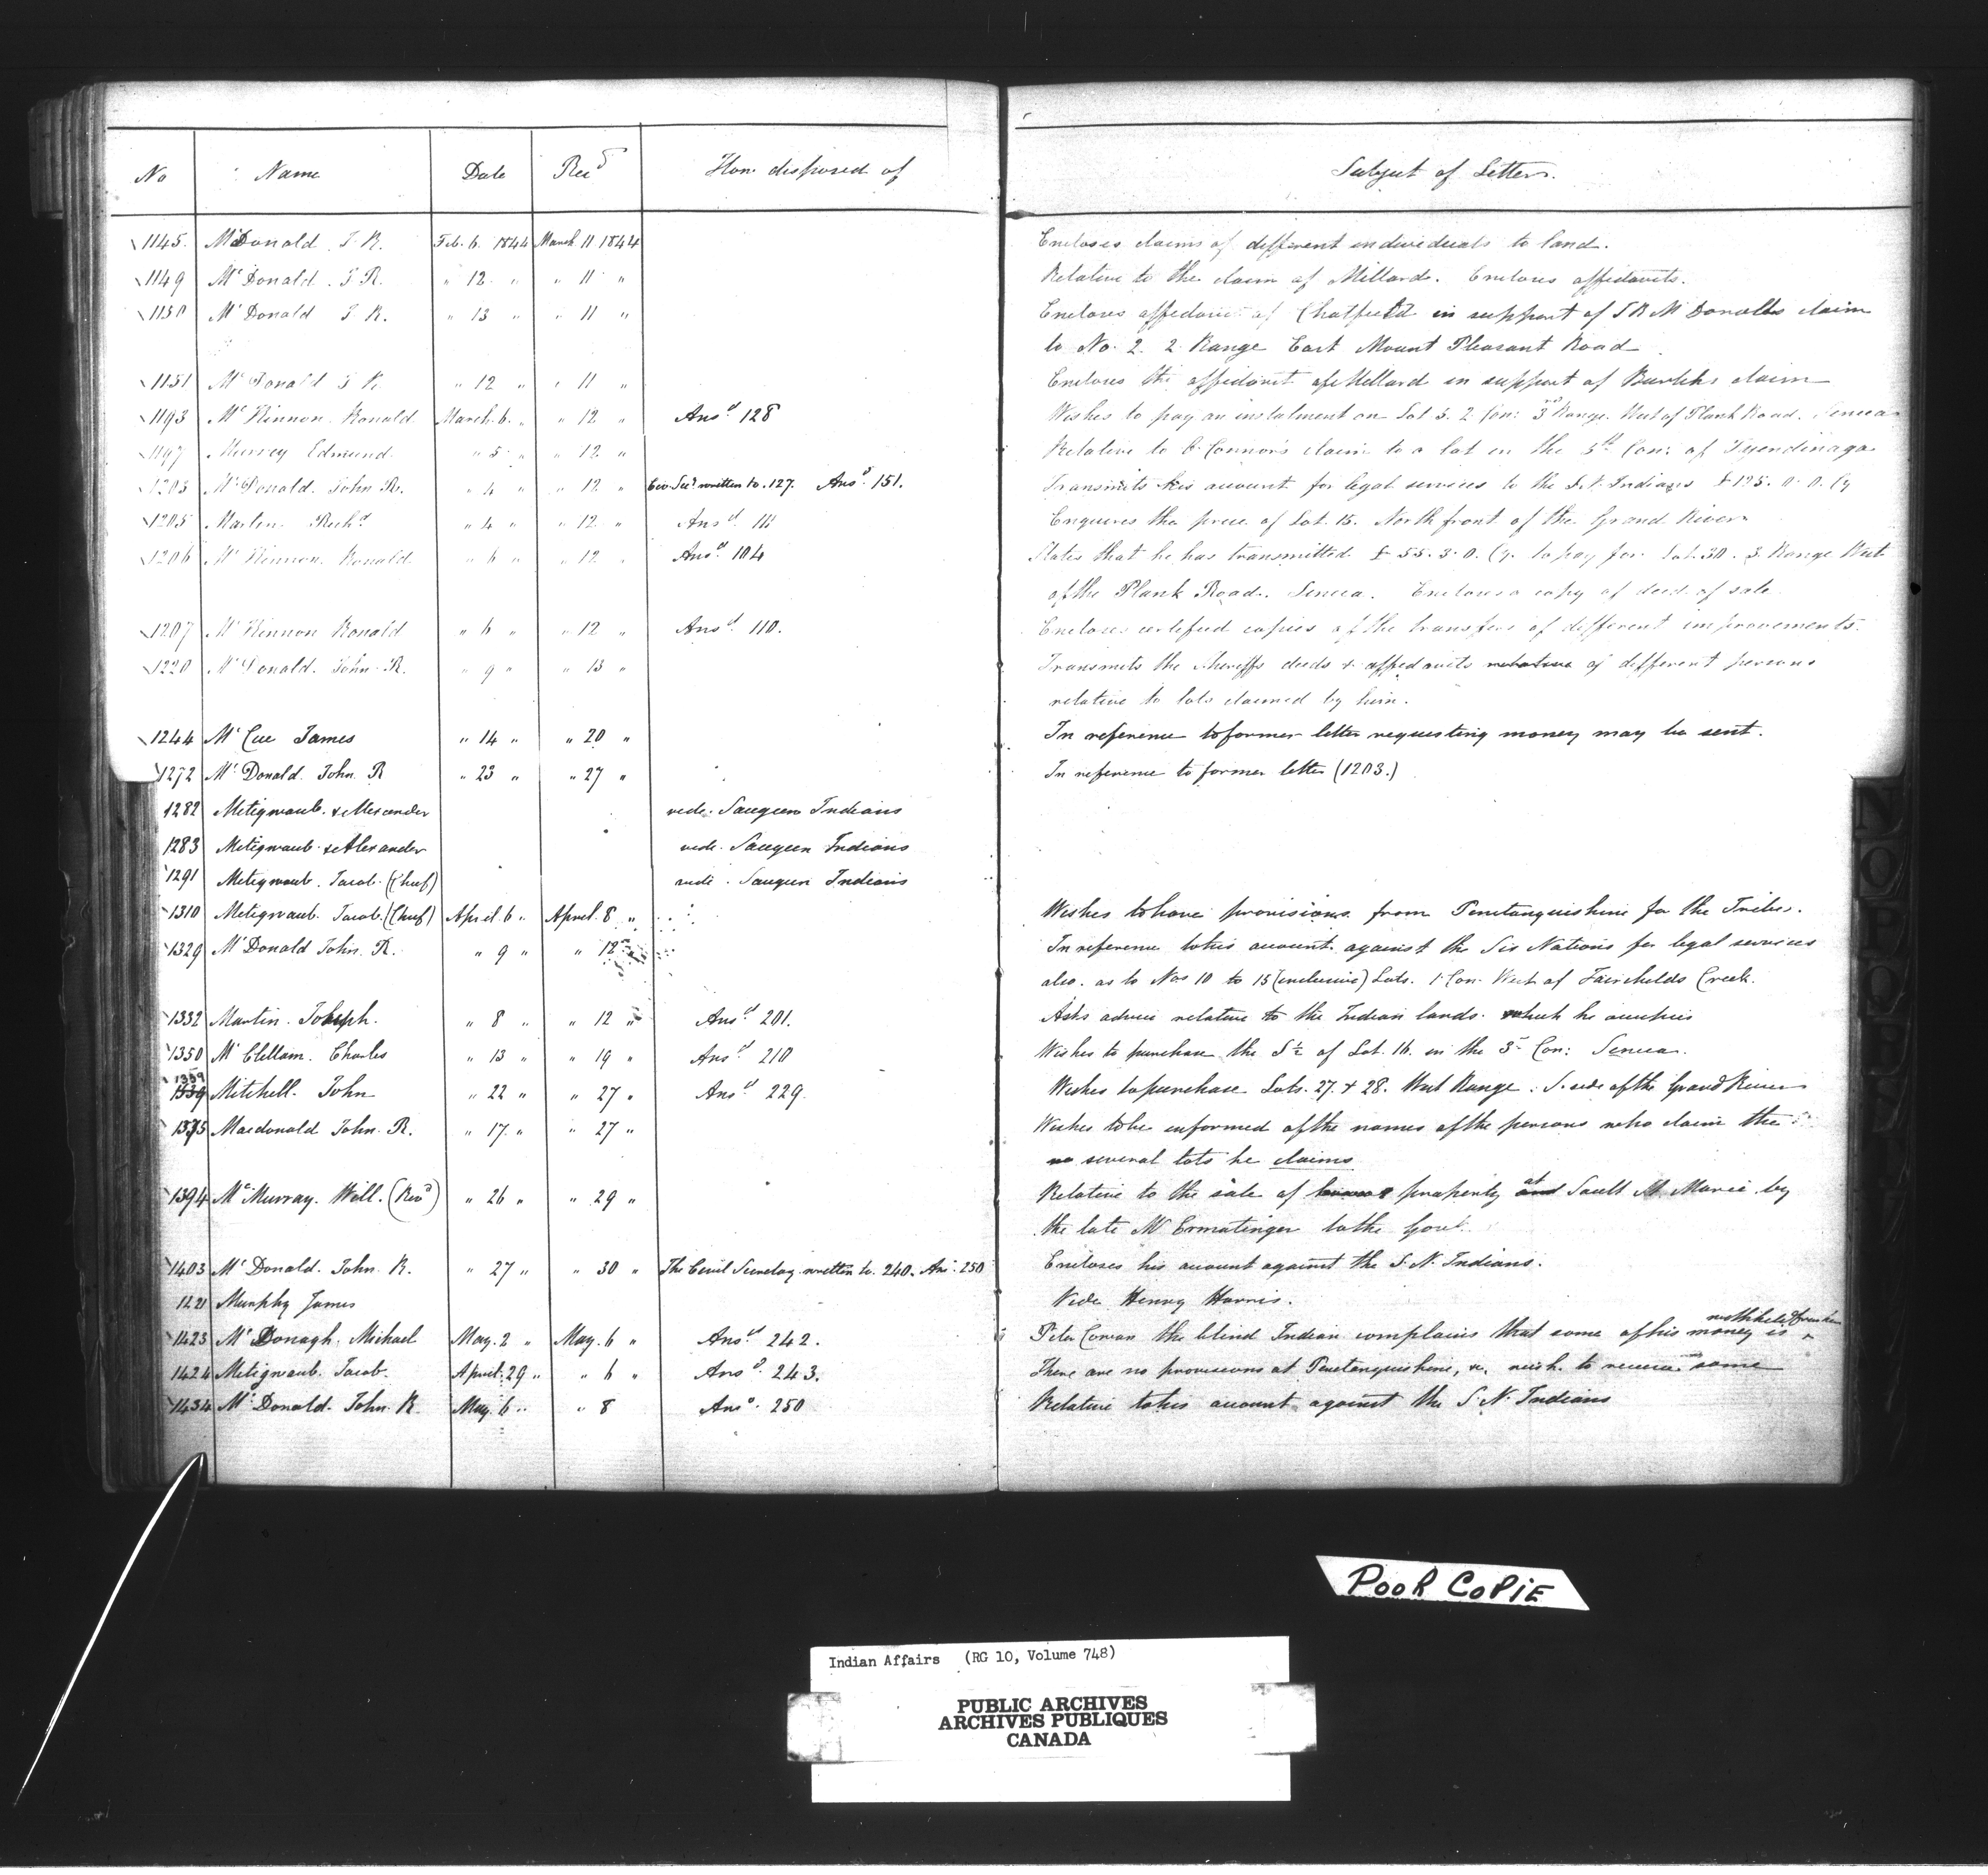 No Name Date Recd How disposed of Subject of Letter.
1145. McDonald J. R. Feb. 6. 1844 March 11 1844 Encloses claims of different individuals to land.
1149 McDonald. J. R. " 12 " " 11 " Relative to the claim of Millard. Encloses affidavits.
1150 McDonald J. R. " 13 " " 11 " Encloses affidavit of Chatfield in support of J R McDonalds claim
to No. 2. 2 Range East Mount Pleasant Road
1151 McDonald J R. " 12 " " 11 " Encloses the affidavit of Millard in support of claim
1193 McKinnon. Ronald March. 6. " " 12 " Ansd 128 Wishes to pay an instalment on Lot 5. 2 Con: 3rd Range. West of Plank Road. Seneca
1197 Murrey Edmund. " 5 " " 12 " Relative to O'Connor's claim to a lot in the 5th Con: of Tyendinaga
1203 McDonald. John R. " 4 " " 12 " Civ Secy written to. 127. Ansd. 151. Transmits his account for legal services to the S. N. Indians £125. 0. 0. Cy
1205 Martin Richd " 4 " " 12 " Ansd. 111 Enquires the price of Lot. 15. North front of the Grand River
1206 McKinnon. Ronald " 6 " " 12 " Ansd. 104 States that he has transmitted £55. 3. 0. Cy. to pay for Lot. 30. 3. Range West
of the Plank Road. Seneca. Encloses a copy of deed of sale
1207 McKinnon Ronald " 6 " " 12 " Ansd. 110. Encloses certified copies of the transfers of different improvements.
1220 McDonald. John R. " 9 " " 13 " Transmits the Sheriffs deeds & affidavits relative of different persons
relative to lots claimed by him.
1244 McCue James " 14 " " 20 " In reference to former letter requesting money may be sent.
1272 McDonald. John R " 23 " " 27 " In reference to former letter (1203.)
1282 Metigwaub. & Alexander vide. Saugeen Indians
1283 Metigwaub & Alexander vide. Saugeen Indians
1291 Metigwaub. Jacob. (Chief) vide. Saugeen Indians
1310 Metigwaub. Jacob. (Chief) April 6 " April 8 " Wishes to have provisions from Penetanguishine for the Tribe.
1329 McDonald John R. " 9 " " 12 " In reference to his account against the Six Nations for legal services
also. as to Nos 10 to 15 (inclusive) Lots. 1 Con. West of Fairchilds Creek.
1332 Martin. Joseph. " 8 " " 12 " Ansd. 201. Asks advice relative to the Indian lands. which he occupies
1350 McClellam. Charles " 13 " " 19 " Ansd 210 Wishes to purchase the S½ of Lot. 16. in the 3d Con: Seneca.
1359
1339 Mitchell. John " 22 " " 27 " Ansd 229. Wishes to purchase Lots. 27. & 28. West Range. S. side of the Grand River
1375 Macdonald John R. " 17. " " 27 " Wishes to be informed of the names of the persons who claim the
several lots he claims
1394 McMurray. Will. (Revd) " 26 " " 29 " Relative to the sale of property at and Sault St. Marie by
the late Mr Ermatinger to the Govt.
1403 McDonald. John R. " 27 " " 30 " The Civil Secretary written to. 240. Ans. 250 Encloses his account against the S. N. Indians.
1221 Murphy James Vide Henry Harris.
1423 McDonagh. Michael May. 2 " May. 6 " Ansd 242. Peter Cowan the blind Indian complains that some of his money is withheld from him
1424 Metigwaub. Jacob. April. 29 " " 6 " Ansd. 243. There are no provisions at Penetanguishine, &c. wish. to receive some
1434 McDonald. John R. May. 6 " " 8 Ansd. 250 Relative to his account against the S. N. Indians
POOR COPIE
Indian Affairs (RG 10, Volume 748)
PUBLIC ARCHIVES
ARCHIVES PUBLIQUES
CANADA